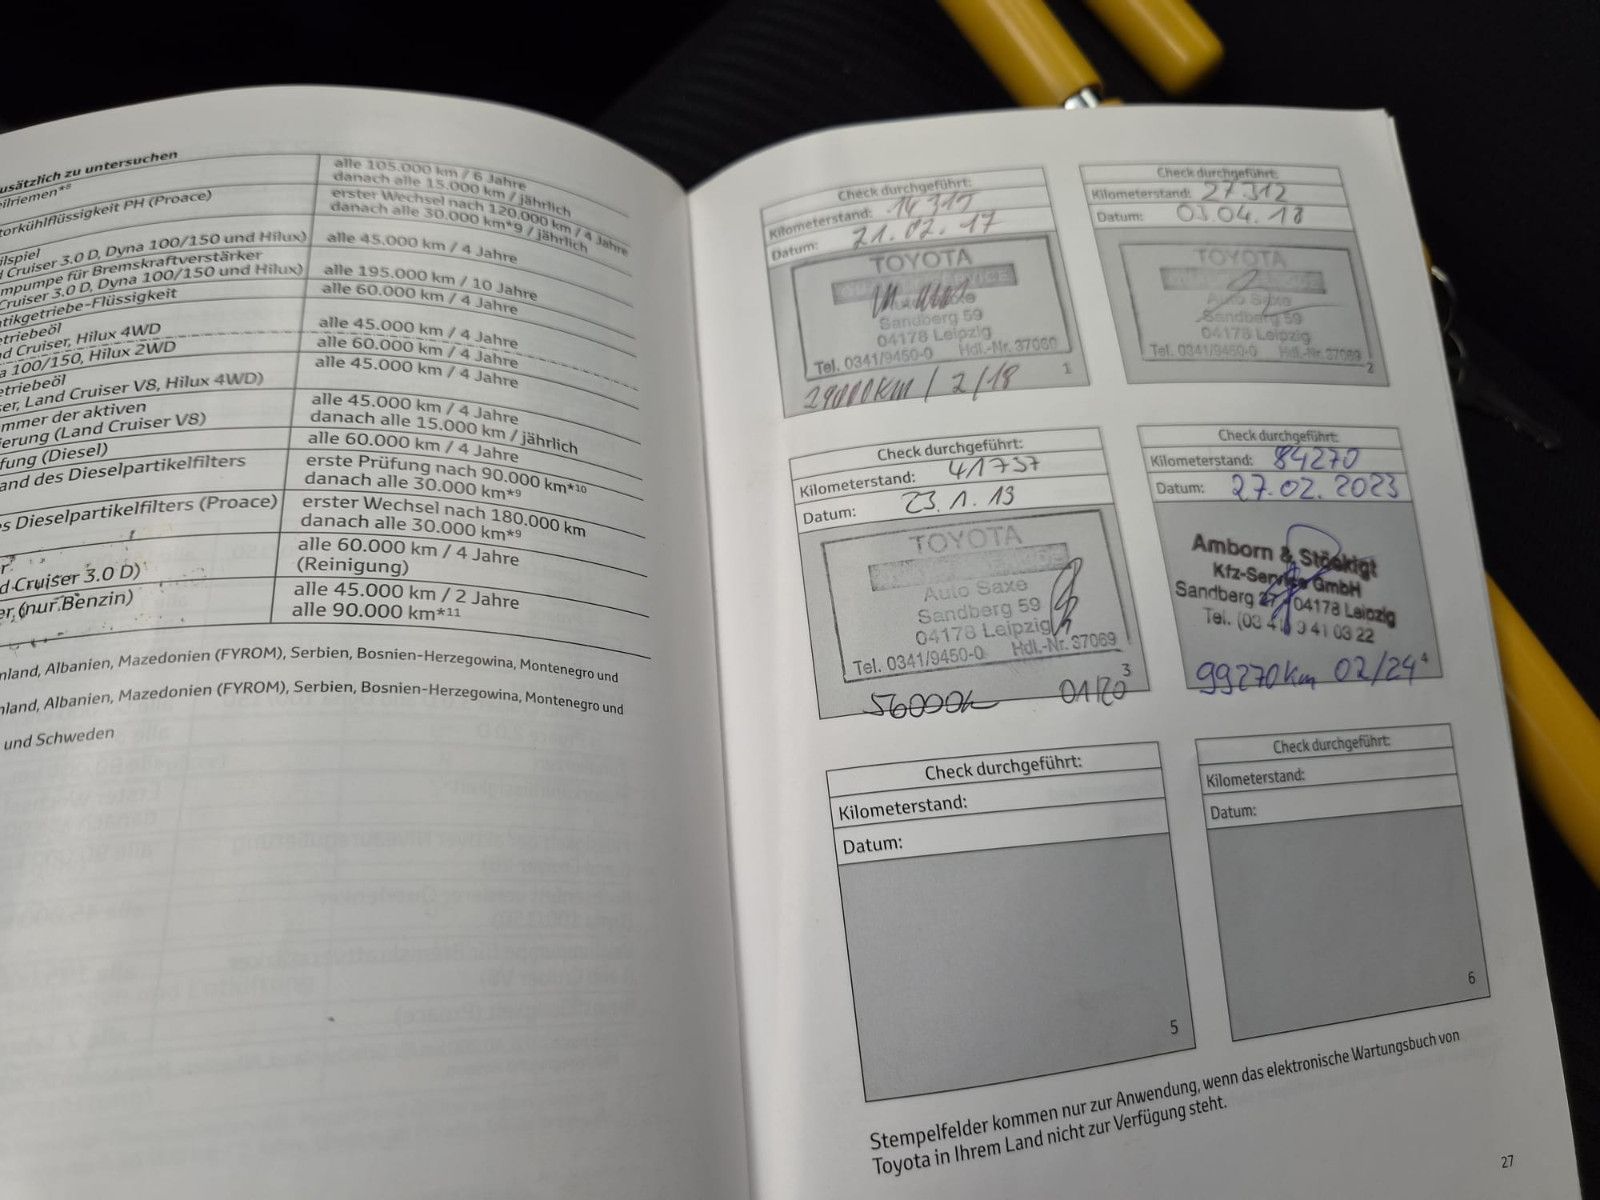 usätzlich zu untersuchen
eilriemen*8
alle 105.000 km / 6 Jahre
danach alle 15.000 km / jährlich
torkühlflüssigkeit PH (Proace)
erster Wechsel nach 120.000 km / 4 Jahre
danach alle 30.000 km*9 / jährlich
ilspiel
d Cruiser 3.0 D, Dyna 100/150 und Hilux)
alle 45.000 km / 4 Jahre
mpumpe für Bremskraftverstärker
Cruiser 3.0 D, Dyna 100/150 und Hilux)
alle 195.000 km / 10 Jahre
tikgetriebe-Flüssigkeit
alle 60.000 km / 4 Jahre
triebeöl
d Cruiser, Hilux 4WD
alle 45.000 km / 4 Jahre
a 100/150, Hilux 2WD
alle 60.000 km / 4 Jahre
etriebeöl
ser, Land Cruiser V8, Hilux 4WD)
alle 45.000 km / 4 Jahre
mmer der aktiven
ierung (Land Cruiser V8)
alle 45.000 km / 4 Jahre
danach alle 15.000 km / jährlich
fung (Diesel)
alle 60.000 km / 4 Jahre
and des Dieselpartikelfilters
erste Prüfung nach 90.000 km*10
danach alle 30.000 km*9
s Dieselpartikelfilters (Proace)
erster Wechsel nach 180.000 km
danach alle 30.000 km*9
r
d Cruiser 3.0 D)
alle 60.000 km / 4 Jahre
(Reinigung)
er (nur Benzin)
alle 45.000 km / 2 Jahre
alle 90.000 km*11
nland, Albanien, Mazedonien (FYROM), Serbien, Bosnien-Herzegowina, Montenegro und
nland, Albanien, Mazedonien (FYROM), Serbien, Bosnien-Herzegowina, Montenegro und
und Schweden
Check durchgeführt:
Kilometerstand: 14315
Datum: 21.02.17
TOYOTA
Sandberg 59
04178 Leipzig
Tel. 0341/9450-0 Hdl.-Nr. 37069
1
29000km / 2/18
Check durchgeführt:
Kilometerstand: 27312
Datum: 03.04.18
TOYOTA
Auto Saxe
Sandberg 59
04178 Leipzig
Tel. 0341/9450-0 Hdl.-Nr. 37069
2
Check durchgeführt:
Kilometerstand: 41737
Datum: 23.1.19
TOYOTA
Auto Saxe
Sandberg 59
04178 Leipzig
Tel. 0341/9450-0 Hdl.-Nr. 37069
3
56000k 01/20
Check durchgeführt:
Kilometerstand: 84270
Datum: 27.02.2023
Amborn & Stöckigt
Kfz-Service GmbH
Sandberg 27, 04178 Leipzig
Tel. (03 41) 9 41 03 22
99270km 02/24
4
Check durchgeführt:
Kilometerstand:
Datum:
5
Check durchgeführt:
Kilometerstand:
Datum:
6
Stempelfelder kommen nur zur Anwendung, wenn das elektronische Wartungsbuch von
Toyota in Ihrem Land nicht zur Verfügung steht.
27